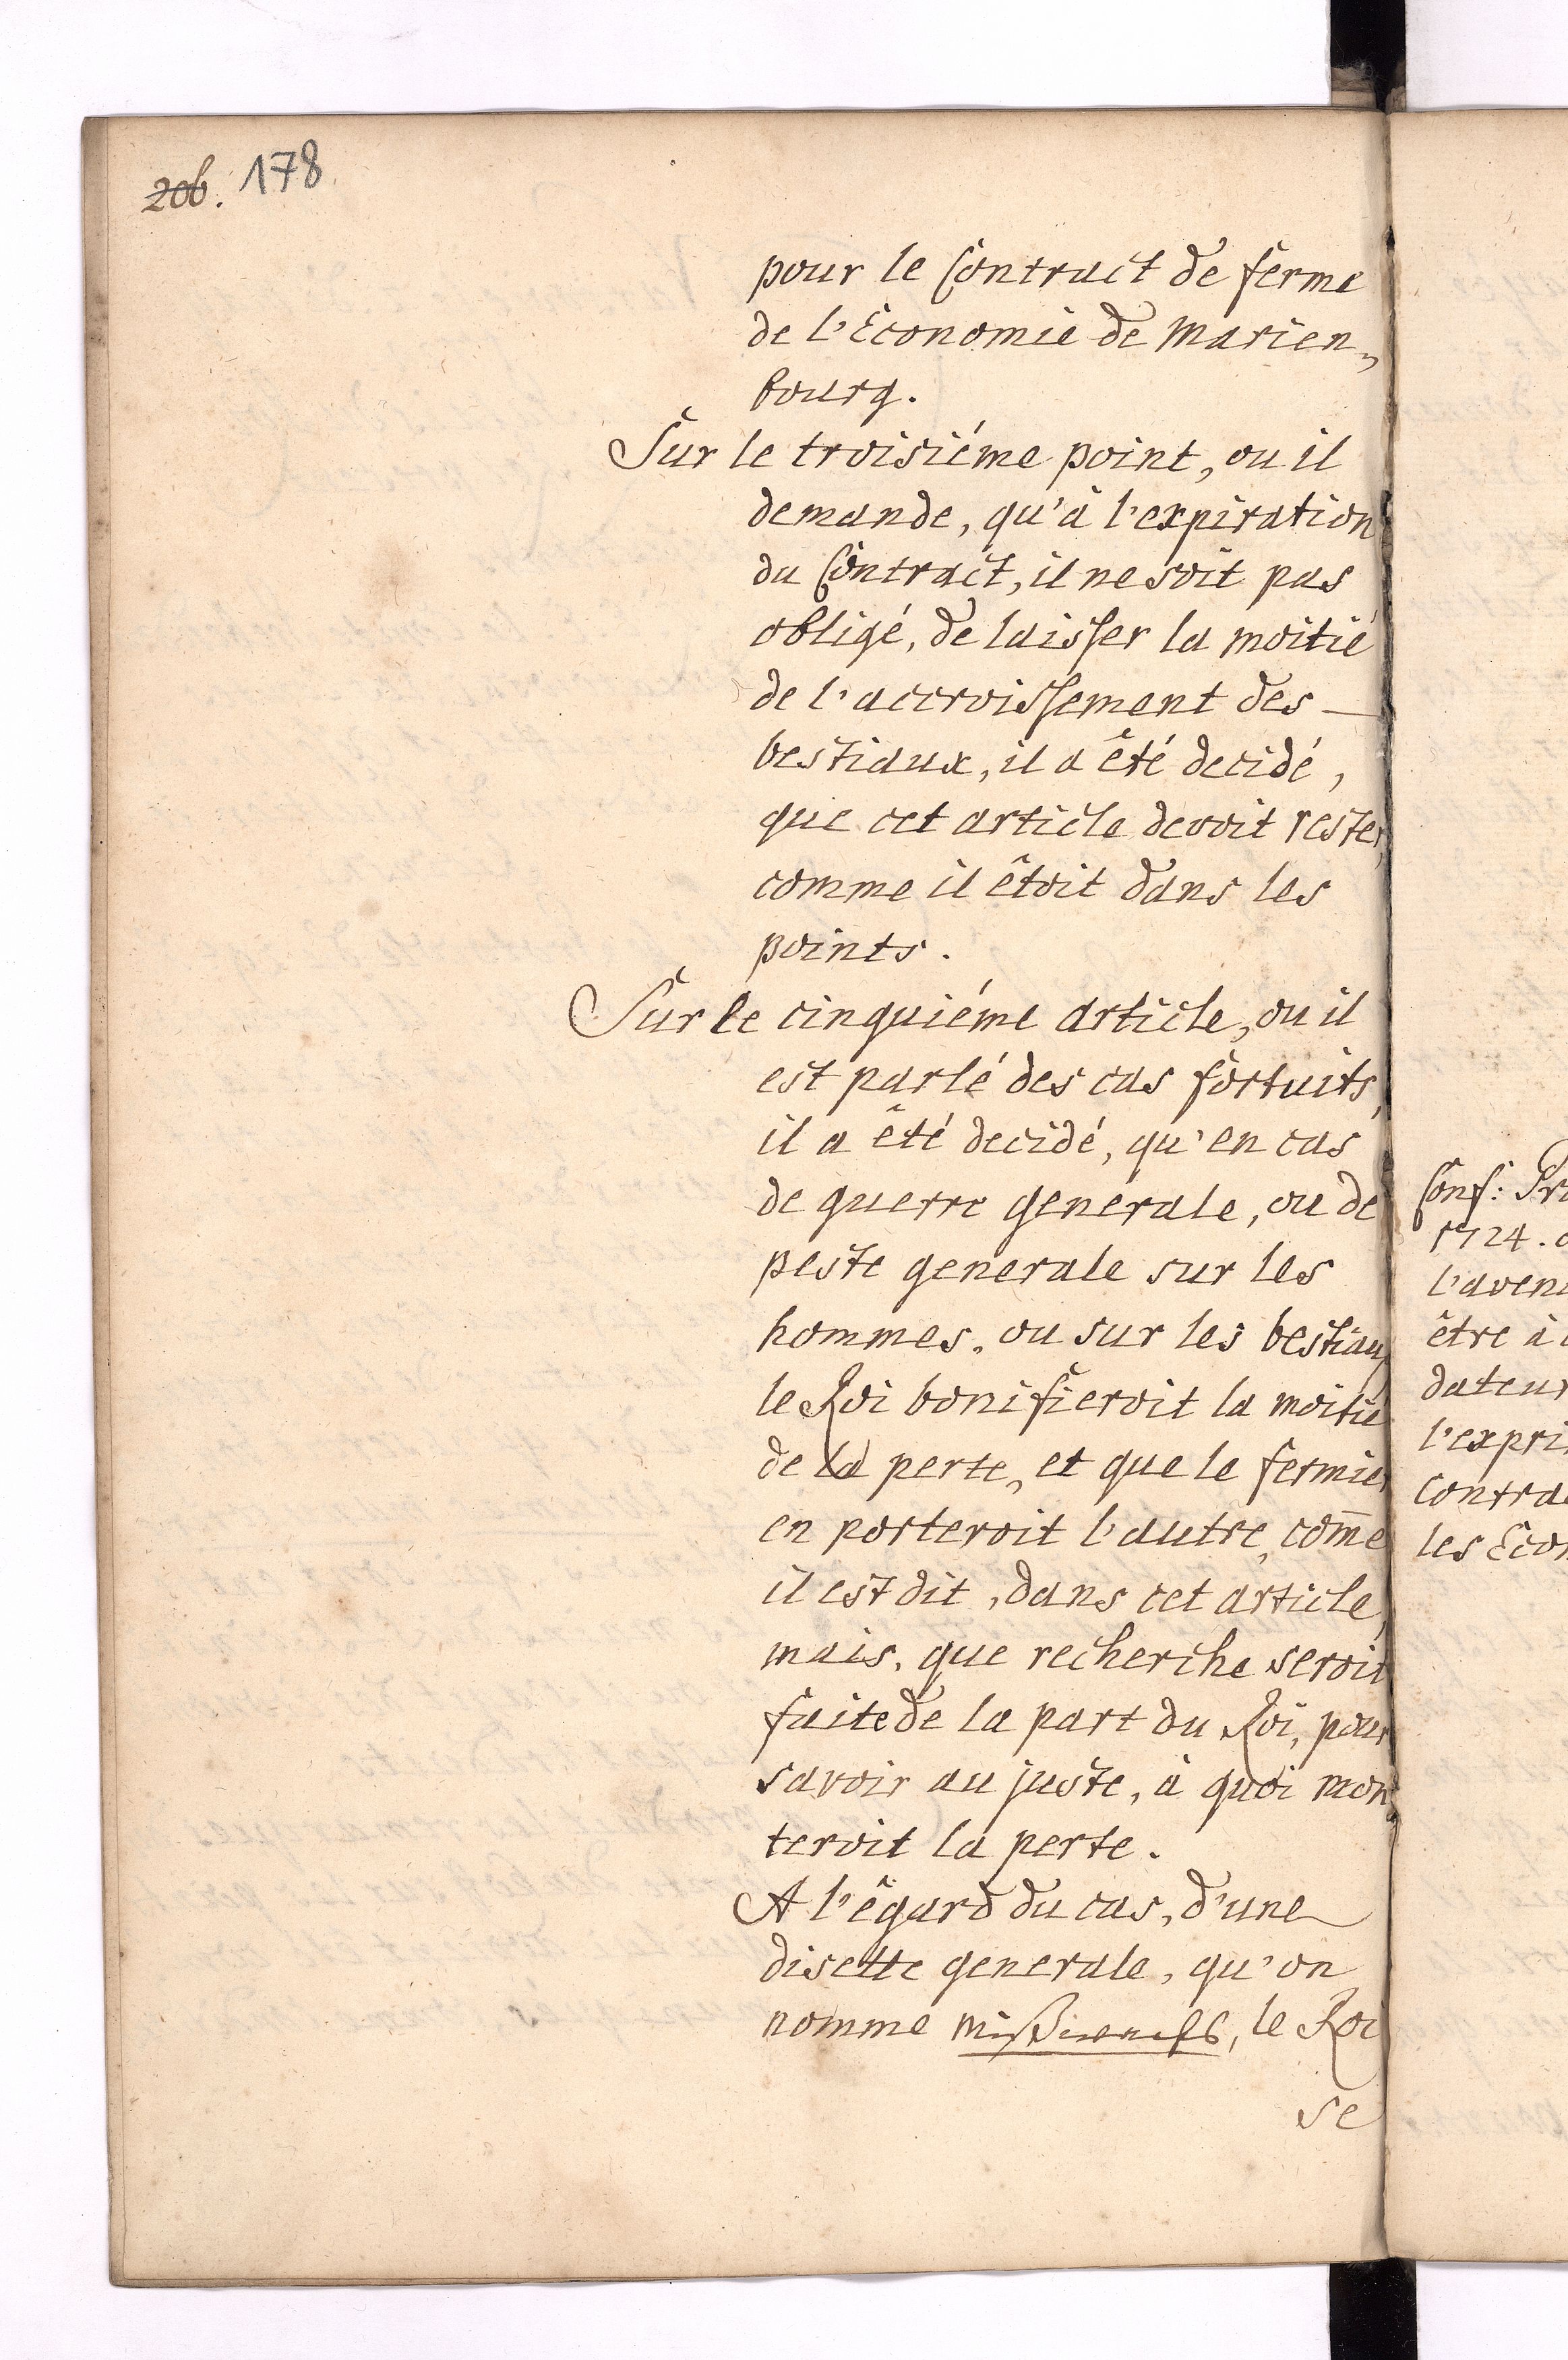 206. 178
pour le Contract de ferme
de l'Economie de Marien„
bourg.
Sur le troisiéme point, ou il
demande, qu'à l'expiration
du Contract, il ne soit pas
obligé, de laisser la moitié
de l'accroissement des —
bestiaux, il a êté decidé,
que cet article devoit rester,
comme il êtoit dans les
points.
Sur le cinquiéme article, ou il
est parlé des cas fortuits,
il a êté decidé, qu'en cas
de guerre generale, ou de
peste generale sur les
hommes, ou sur les bestiaux
le Roi bonifieroit la moitié
de la perte, et que le fermier
en porteroit l'autre, com̄e
il est dit, dans cet article,
mais, que recherche seroit
faite de la part du Roi, pour
savoir au juste, à quoi mon„
teroit la perte.
A l'êgard du cas, d'une
disette generale, qu'on
nomme , le Roi
se
Conf: Pr
1724.
l'aveni
être à
dateur
l'expri
contra
les Eco